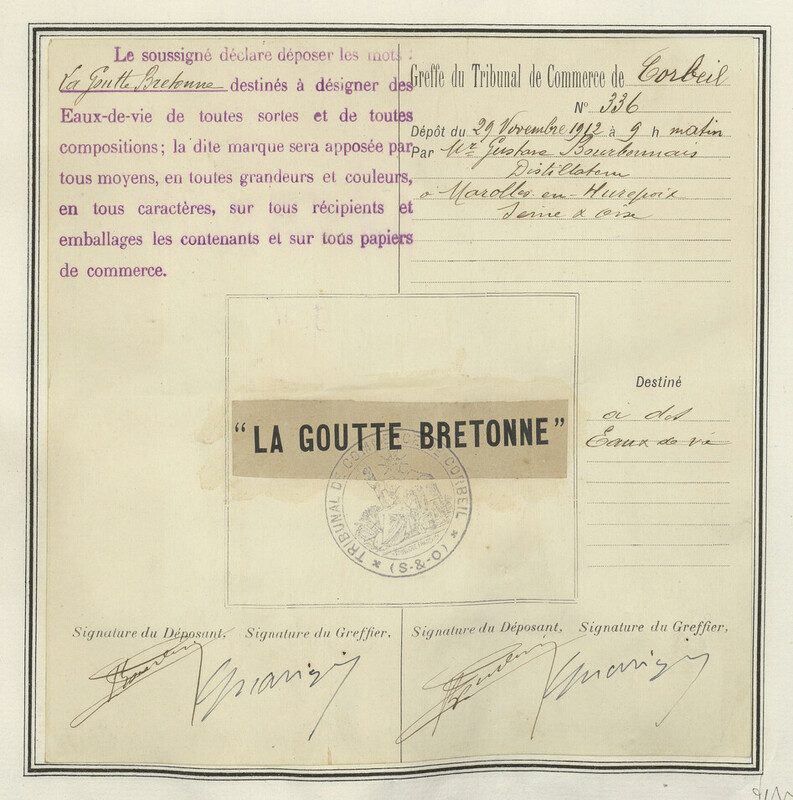 Le soussigné déclare déposer les mots :
La Goutte Bretonne destinés à désigner des
Eaux-de-vie de toutes sortes et de toutes
compositions; la dite marque sera apposée par
tous moyens, en toutes grandeurs et couleurs,
en tous caractères, sur tous récipients et
emballages les contenants et sur tous papiers
de commerce.
Greffe du Tribunal de Commerce de Corbeil
N° 336
Dépôt du 29 Novembre 1912 à 9 h matin
Par Mr. Gustave Bourbonnais
Distillateur
à Marolles-en-Hurepoix
Seine & Oise
"LA GOUTTE BRETONNE"
TRIBUNAL DE COMMERCE DE CORBEIL
(S-&-O)
Destiné
à des
Eaux de vie
Signature du Déposant. Signature du Greffier.
Signature du Déposant. Signature du Greffier.